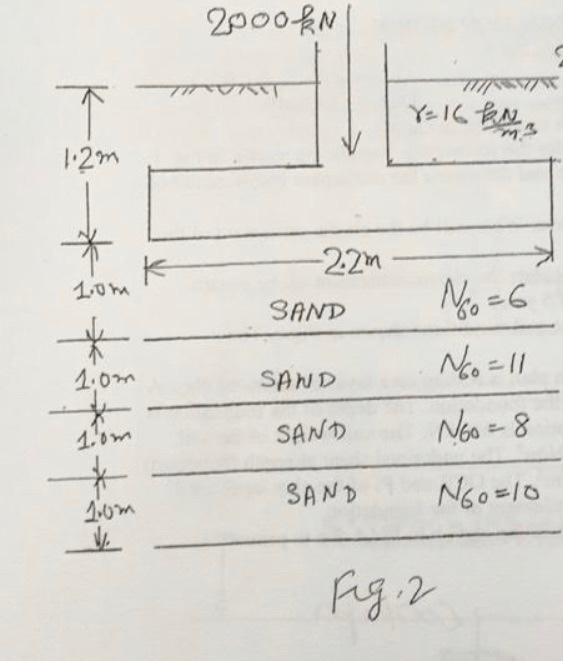 2000 kN
γ=16 kN/m.3
1.2m
2.2m
1.0m
SAND N60=6
1.0m
SAND N60=11
1.0m
SAND N60=8
1.0m
SAND N60=10
Fig.2